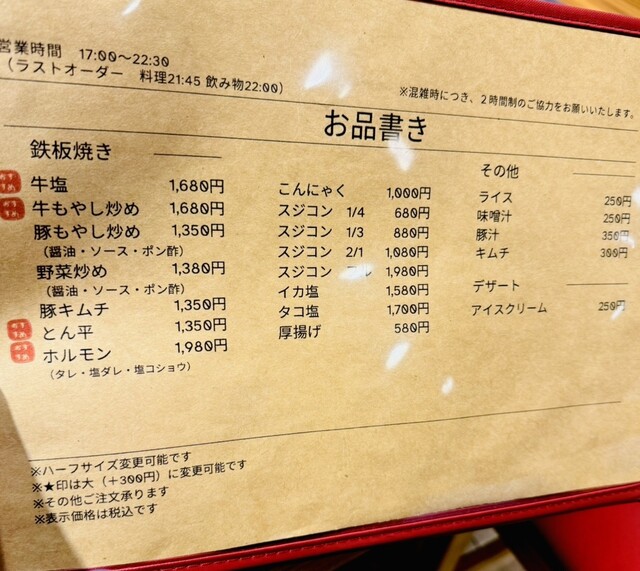 営業時間 17:00〜22:30
（ラストオーダー 料理21:45 飲み物22:00）
※混雑時につき、2時間制のご協力をお願いいたします。
お品書き
鉄板焼き
おすすめ 牛塩 1,680円
おすすめ 牛もやし炒め 1,680円
豚もやし炒め 1,350円
（醤油・ソース・ポン酢）
野菜炒め 1,380円
（醤油・ソース・ポン酢）
豚キムチ 1,350円
おすすめ とん平 1,350円
おすすめ ホルモン 1,980円
（タレ・塩ダレ・塩コショウ）
こんにゃく 1,000円
スジコン 1/4 680円
スジコン 1/3 880円
スジコン 2/1 1,080円
スジコン 1,980円
イカ塩 1,580円
タコ塩 1,700円
厚揚げ 580円
その他
ライス 250円
味噌汁 250円
豚汁 350円
キムチ 300円
デザート
アイスクリーム 250円
※ハーフサイズ変更可能です
※★印は大（＋300円）に変更可能です
※その他ご注文承ります
※表示価格は税込です